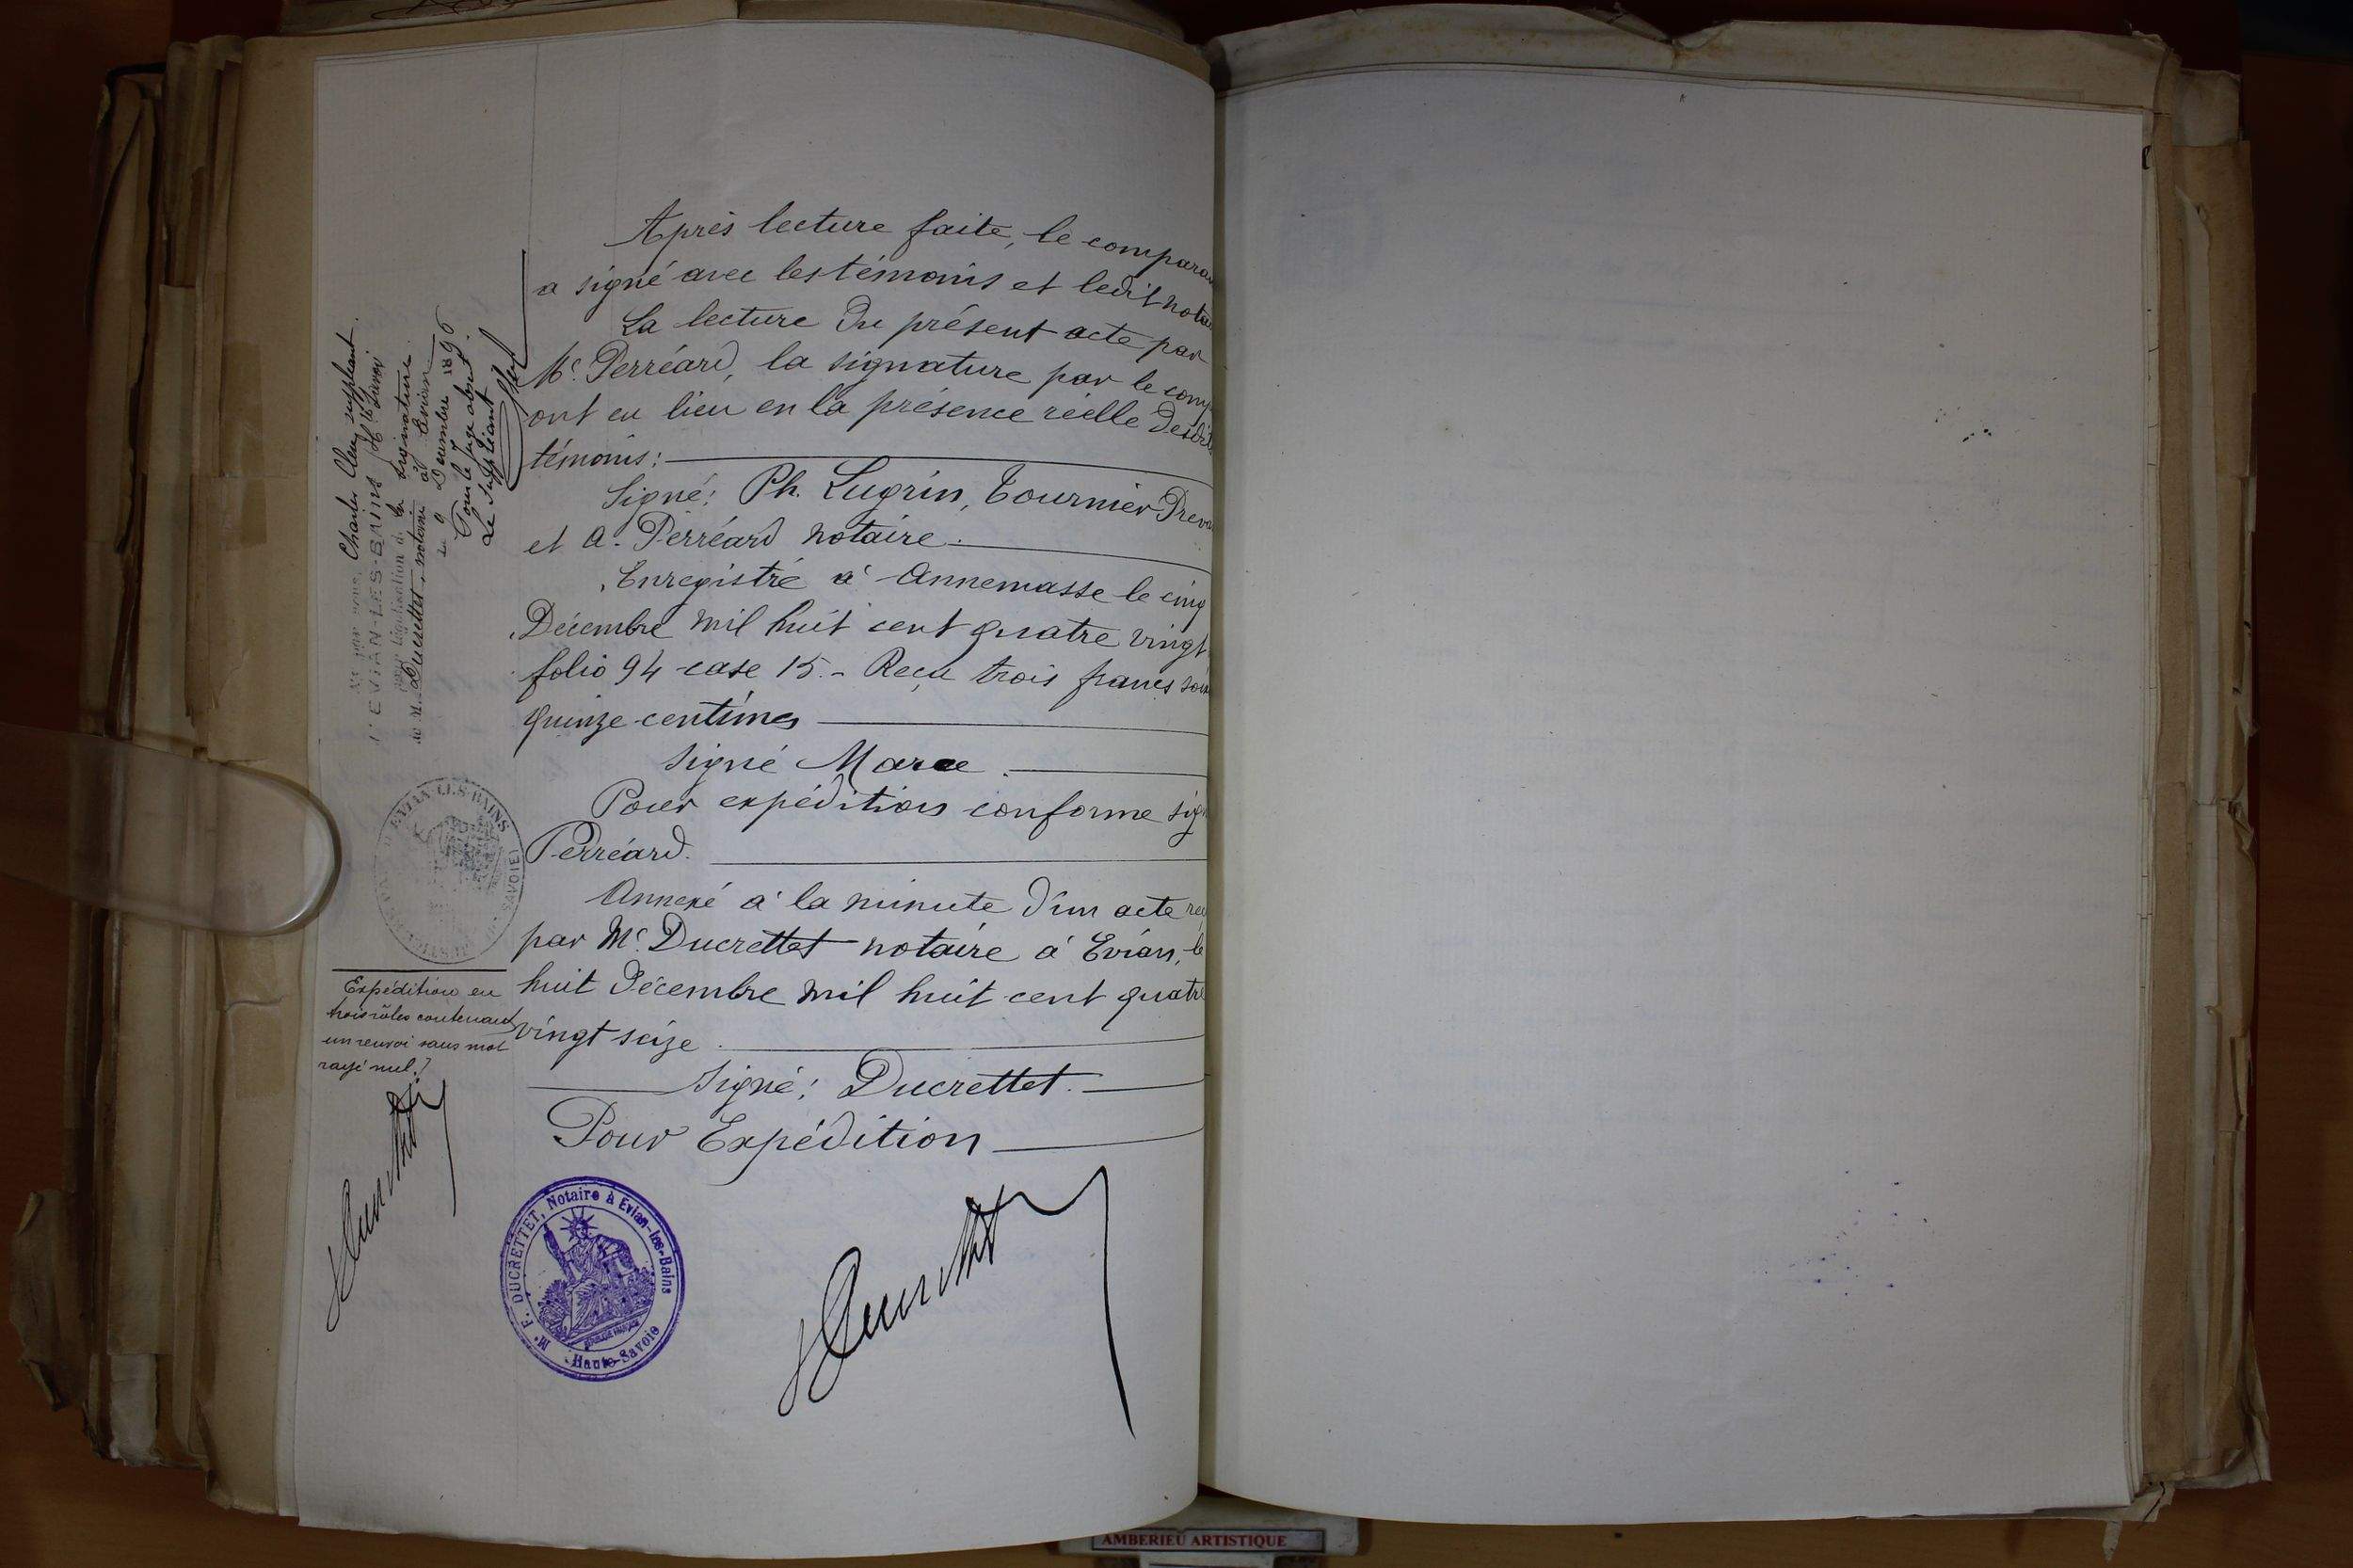 Après lecture faite, le comparan
a signé avec les témoins et ledit nota
La lecture du présent acte par
Mᵉ. Perréard, la signature par le comp
ont eu lieu en la présence réelle desdits
témoins:
Signé: Ph. Lugrin, Tournier
et A. Perréard notaire.
Enregistré à Annemasse le cinq
Décembre mil huit cent quatre vingt
folio 94 case 15. - Reçu trois francs soix
quinze centimes
signé Marce.
Pour expédition conforme sig
Perréard.
Annexé à la minute d'un acte reç
par Mᵉ. Ducrettet notaire à Evian, le
huit Décembre mil huit cent quatre
vingt seize.
Signé: Ducrettet.
Pour Expédition
Vu par nous, Charles suppléant.
D'EVIAN-LES-BAINS
pour légalisation de la signature
de M. Ducrettet, notaire à Evian
Le 9 Décembre 1896
Pour le juge absent.
Le suppléant
EVIAN-LES-BAINS
SAVOIE
Expédition en
trois rôles contenant
un renvoi sans mot
rayé nul.
Mᵉ F. DUCRETTET, Notaire à Evian-les-Bains
Haute-Savoie
AMBERIEU ARTISTIQUE